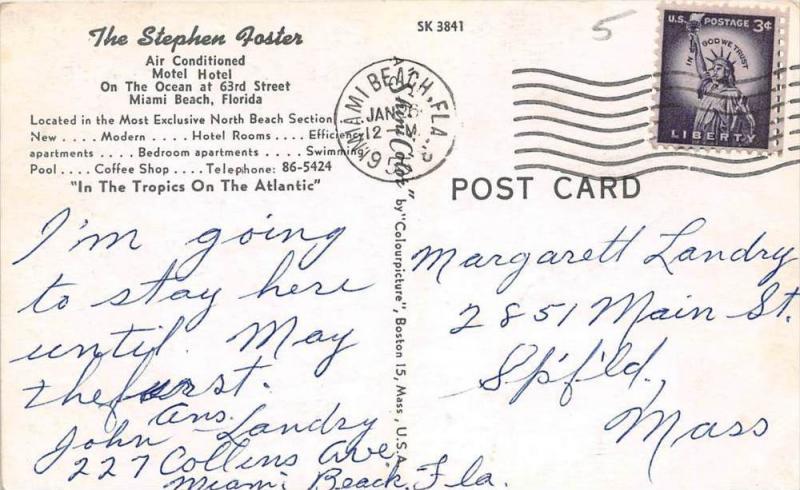 The Stephen Foster
Air Conditioned
Motel Hotel
On The Ocean at 63rd Street
Miami Beach, Florida
Located in the Most Exclusive North Beach Section
New .... Modern .... Hotel Rooms .... Efficiency
apartments .... Bedroom apartments .... Swimming
Pool .... Coffee Shop .... Telephone: 86-5424
"In The Tropics On The Atlantic"
I'm going
to stay here
until May
the first.
Ans.
John Landry
227 Collins Ave
Miami Beach, Fla.
SK 3841
MIAMI BEACH, FLA.
JAN
12 M
195
by "Colourpicture", Boston 15, Mass., U.S.A.
5
U.S. POSTAGE 3¢
IN GOD WE TRUST
LIBERTY
POST CARD
Margarett Landry
2851 Main St.
Sp'f'ld.,
Mass